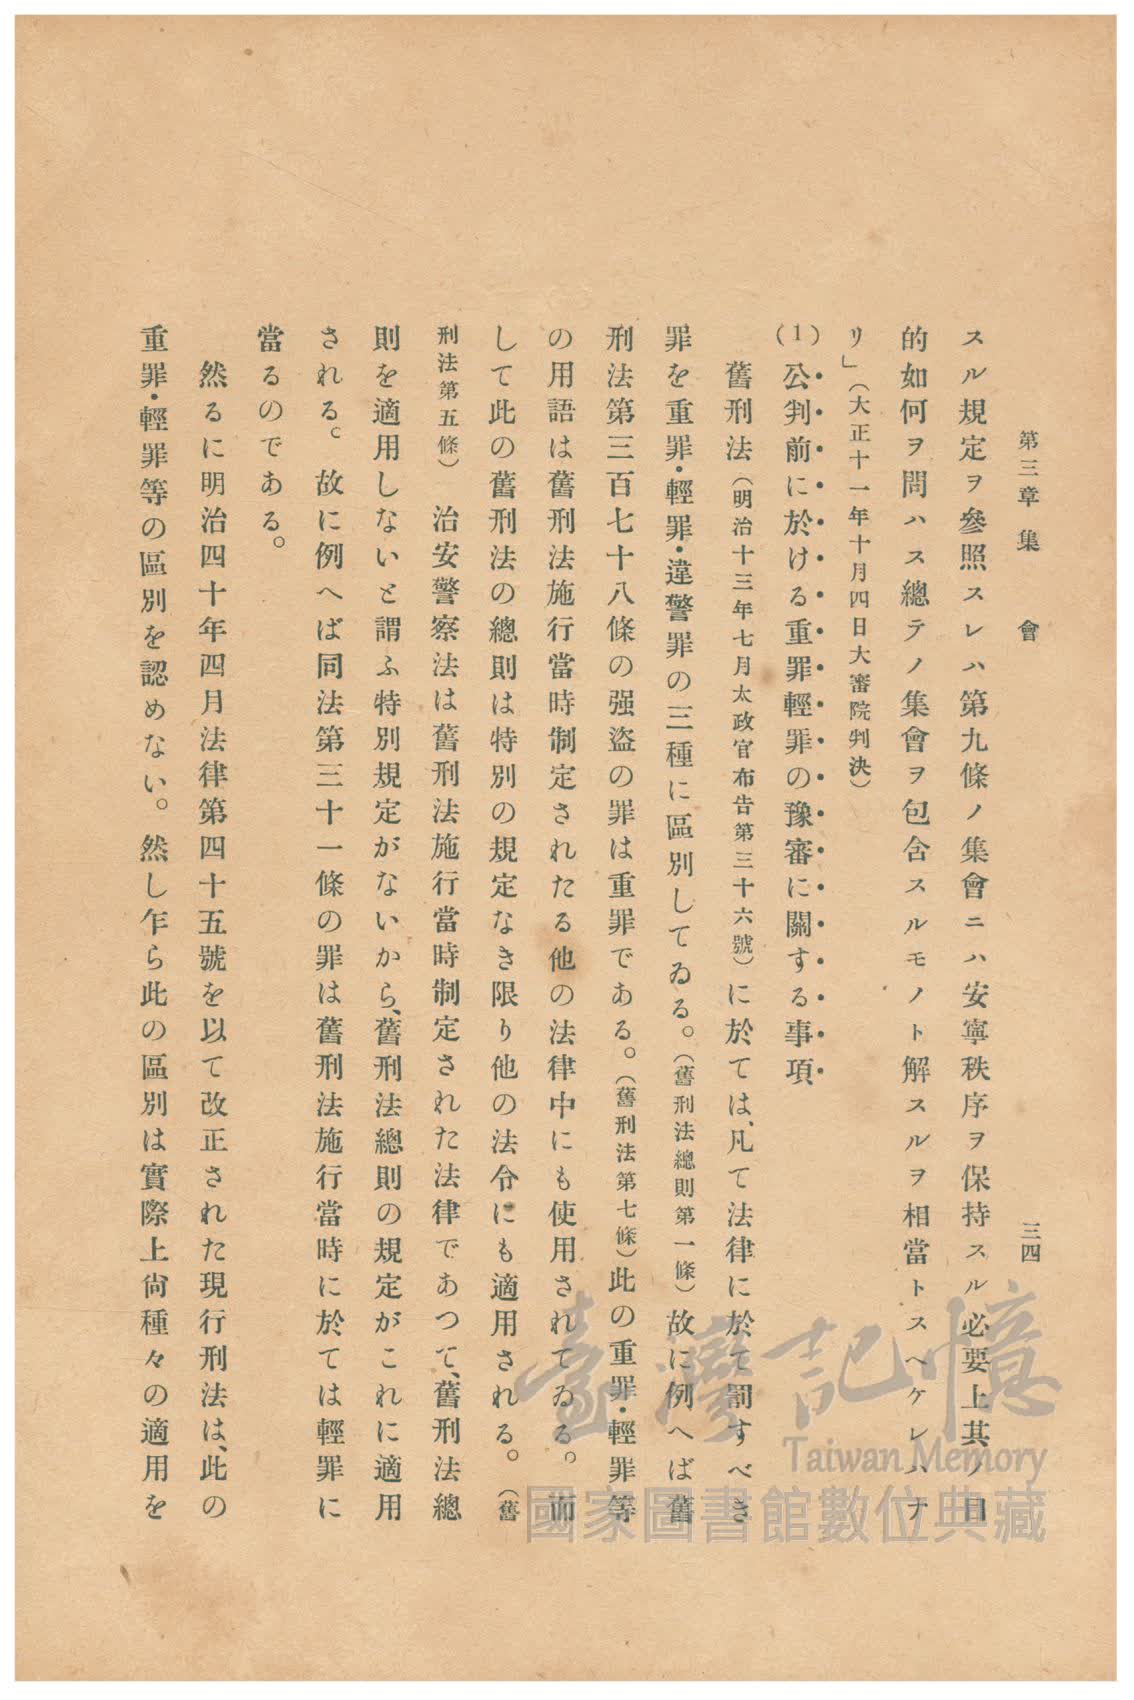 第三章 集會
三四
スル規定ヲ參照スレハ第九條ノ集會ニハ安寧秩序ヲ保持スル必要上其ノ目
的如何ヲ問ハス總テノ集會ヲ包含スルモノト解スルヲ相當トスヘケレハナ
リ」（大正十一年十月四日大審院判決）
(1) 公判前に於ける重罪輕罪の豫審に關する事項
舊刑法（明治十三年七月太政官布告第三十六號）に於ては、凡て法律に於て罰すべき
罪を重罪・輕罪・違警罪の三種に區別してゐる。（舊刑法總則第一條）故に例へば舊
刑法第三百七十八條の强盜の罪は重罪である。（舊刑法第七條）此の重罪・輕罪等
の用語は舊刑法施行當時制定されたる他の法律中にも使用されてゐる。而
して此の舊刑法の總則は特別の規定なき限り他の法令にも適用される。（舊
刑法第五條） 治安警察法は舊刑法施行當時制定された法律であつて、舊刑法總
則を適用しないと謂ふ特別規定がないから、舊刑法總則の規定がこれに適用
される。故に例へば同法第三十一條の罪は舊刑法施行當時に於ては輕罪に
當るのである。
然るに明治四十年四月法律第四十五號を以て改正された現行刑法は、此の
重罪・輕罪等の區別を認めない。然し乍ら此の區別は實際上尙種々の適用を
臺灣記憶
Taiwan Memory
國家圖書館數位典藏